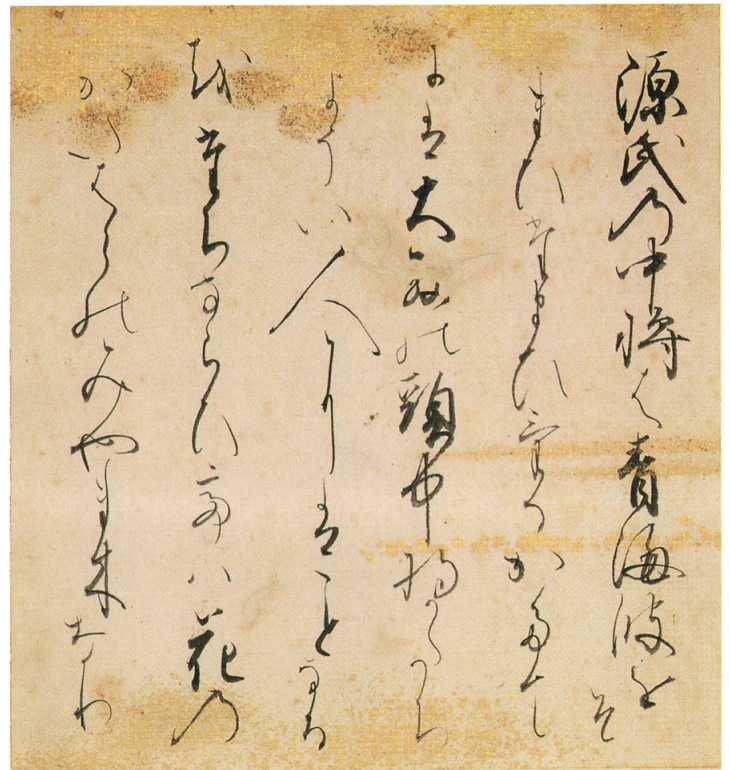 源氏の中将は青海波をそ
まひたまひけるかたて
には大殿の頭中将かたち
ようい人にはことなる
をたちならひては花の
かたはらのみやま木なり